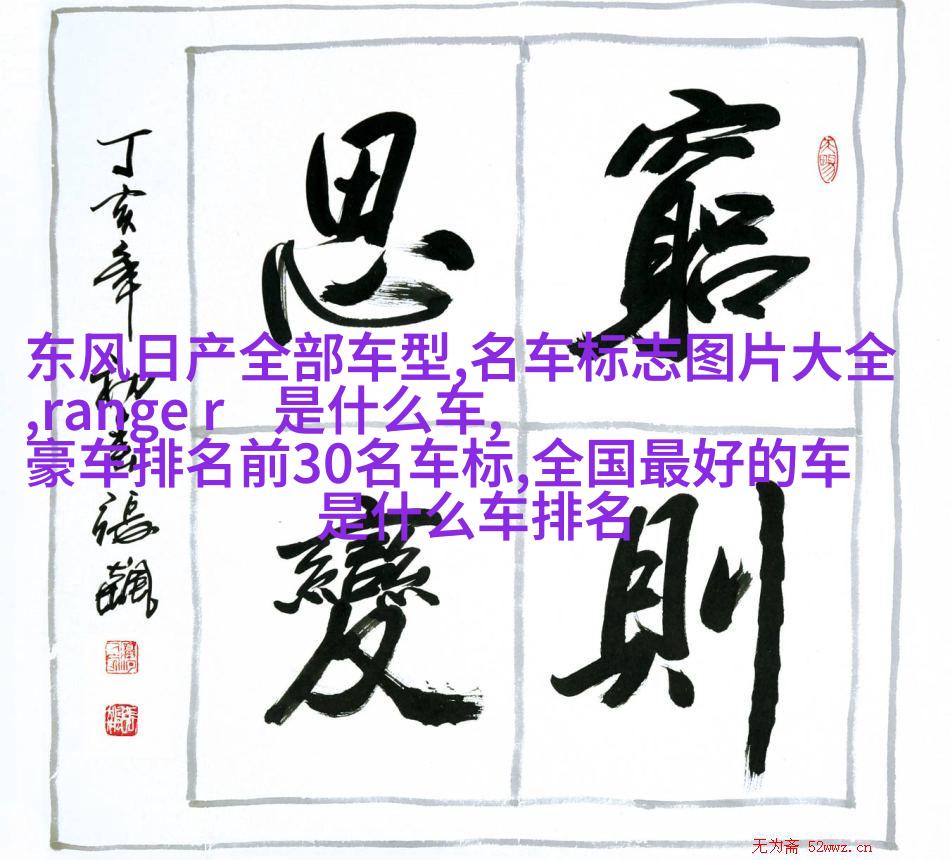 窮則
思變
丁亥年
張飆
东风日产全部车型,名车标志图片大全
,range r 是什么车,
豪车排名前30名车标,全国最好的车
是什么车排名
无为斋 52wwz.cn